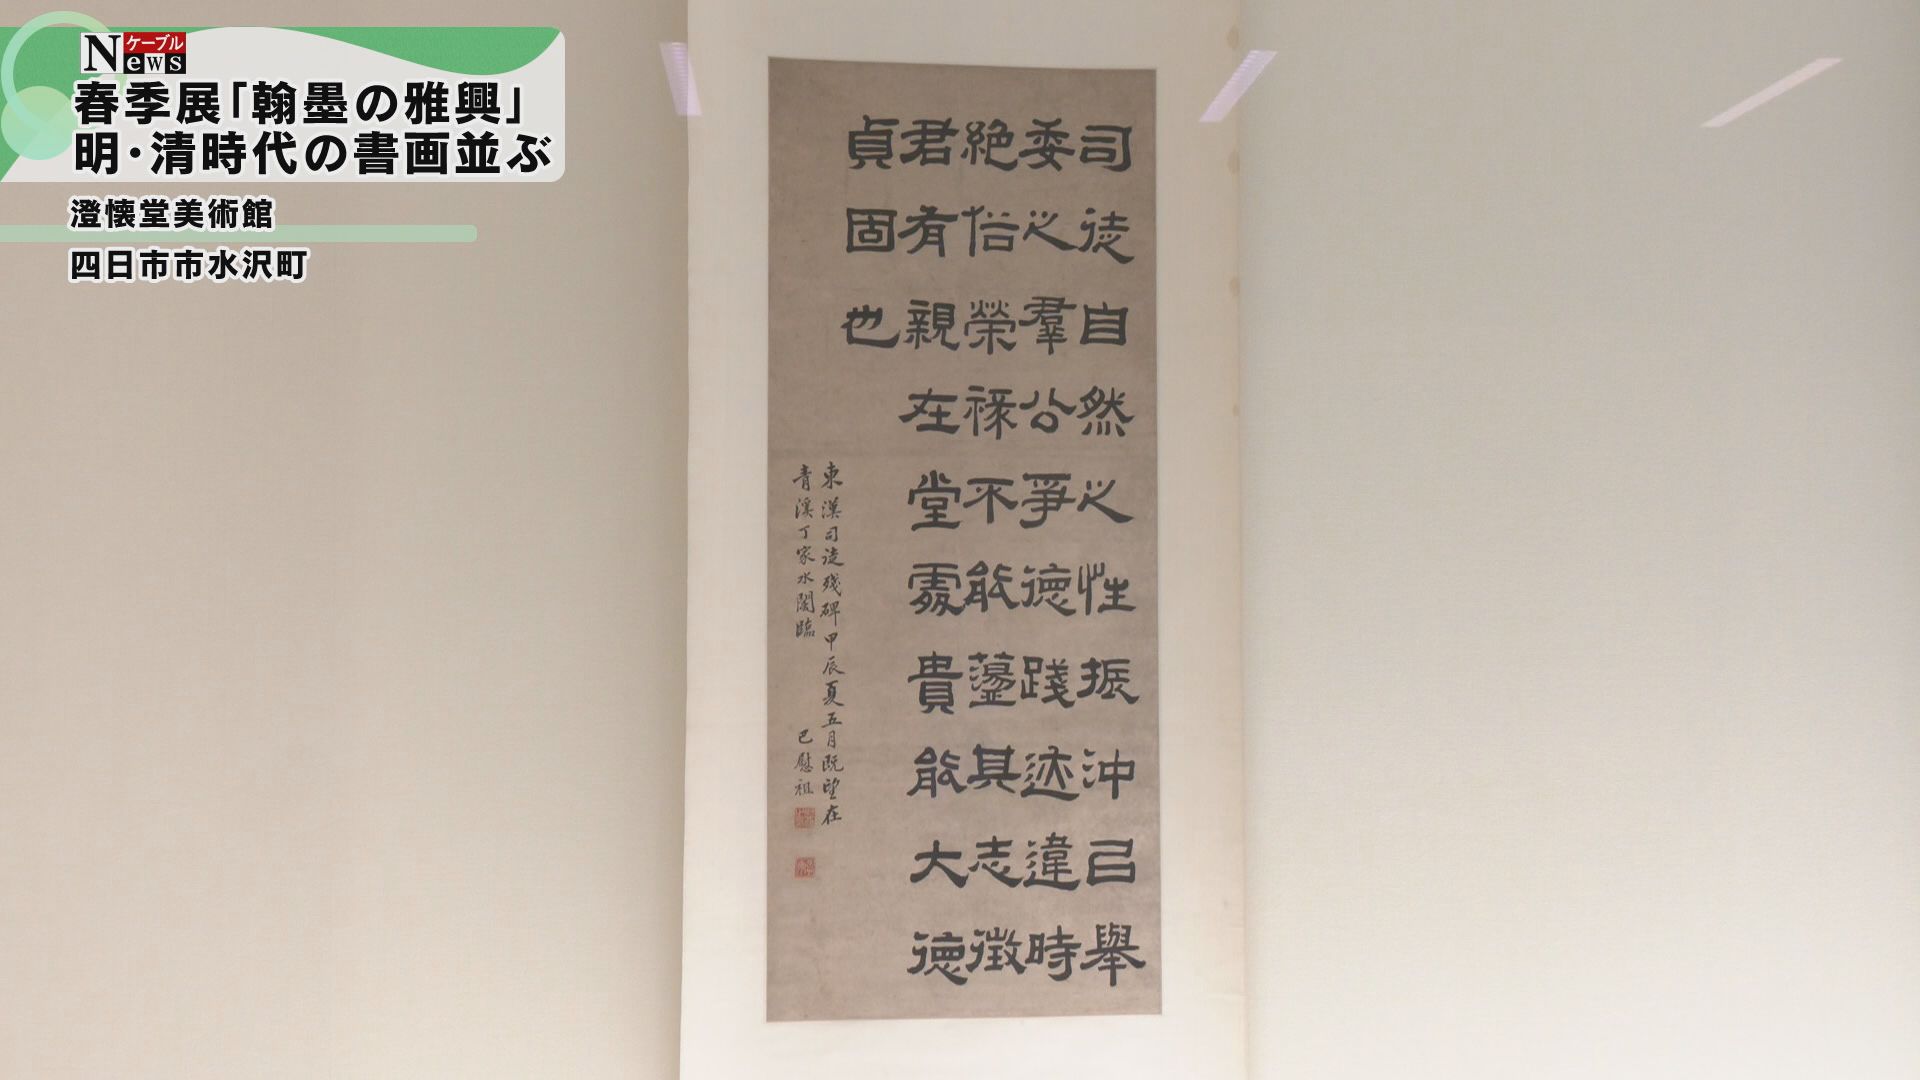 ケーブル
News
春季展「翰墨の雅興」
明・清時代の書画並ぶ
澄懐堂美術館
四日市市水沢町
司徒自然心性振沖己舉
委心羣公爭德踐迹違時
絶俗榮祿不能蘯其志徵
君有親在堂處貴能大德
貞固也
東漢司徒殘碑甲辰夏五月既望在
青溪丁家水閣臨
巴慰祖